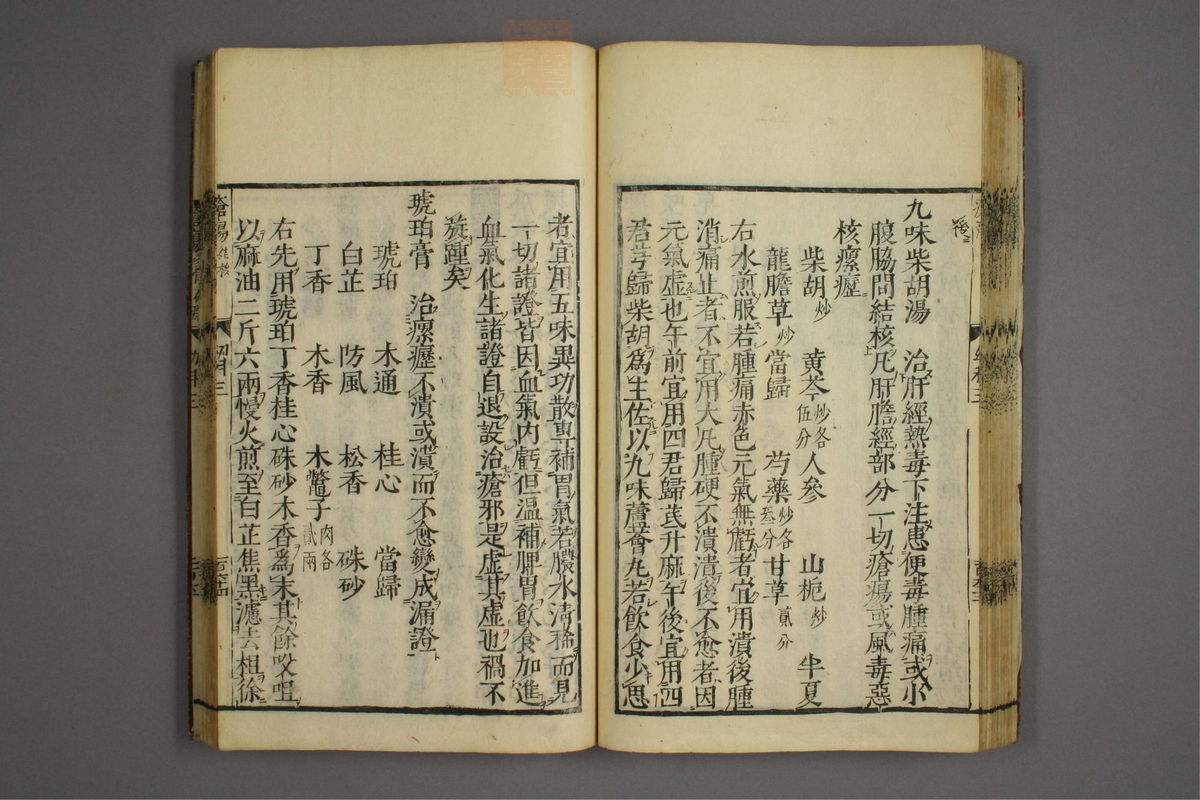 九味柴胡湯　治肝經熱毒下注患便毒腫痛或小
腹脇間結核凡肝膽經部分一切瘡瘍或風毒惡
核瘰癧
柴胡炒　黃芩炒各伍分　人參　山梔炒　半夏
龍膽草炒　當歸　芍藥炒各叁分　甘草貳分
右水煎服若腫痛赤色元氣無虧者宜用潰後腫
消痛止者不宜用大凡腫硬不潰潰後不愈者因
元氣虛也午前宜用四君歸芪升麻午後宜用四
君芎歸柴胡爲主佐以九味蘆薈丸若飲食少思
者宜用五味異功散專補胃氣若膿水清稀而見
一切諸證皆因血氣內虧但溫補脾胃飲食加進
血氣化生諸證自退設治瘡邪是虛其虛也禍不
旋踵矣
琥珀膏　治瘰癧不潰或潰而不愈變成漏證
琥珀　木通　桂心　當歸
白芷　防風　松香　硃砂
丁香　木香　木鱉子肉各貳兩
右先用琥珀丁香桂心硃砂木香爲末其餘㕮咀
以麻油二斤六兩慢火煎至白芷焦黑濾去柤徐